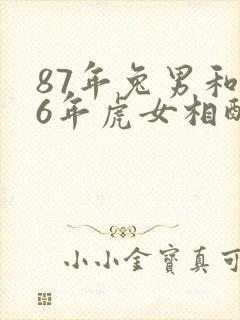 87年兔男和
6年虎女相配
小小金寶真可